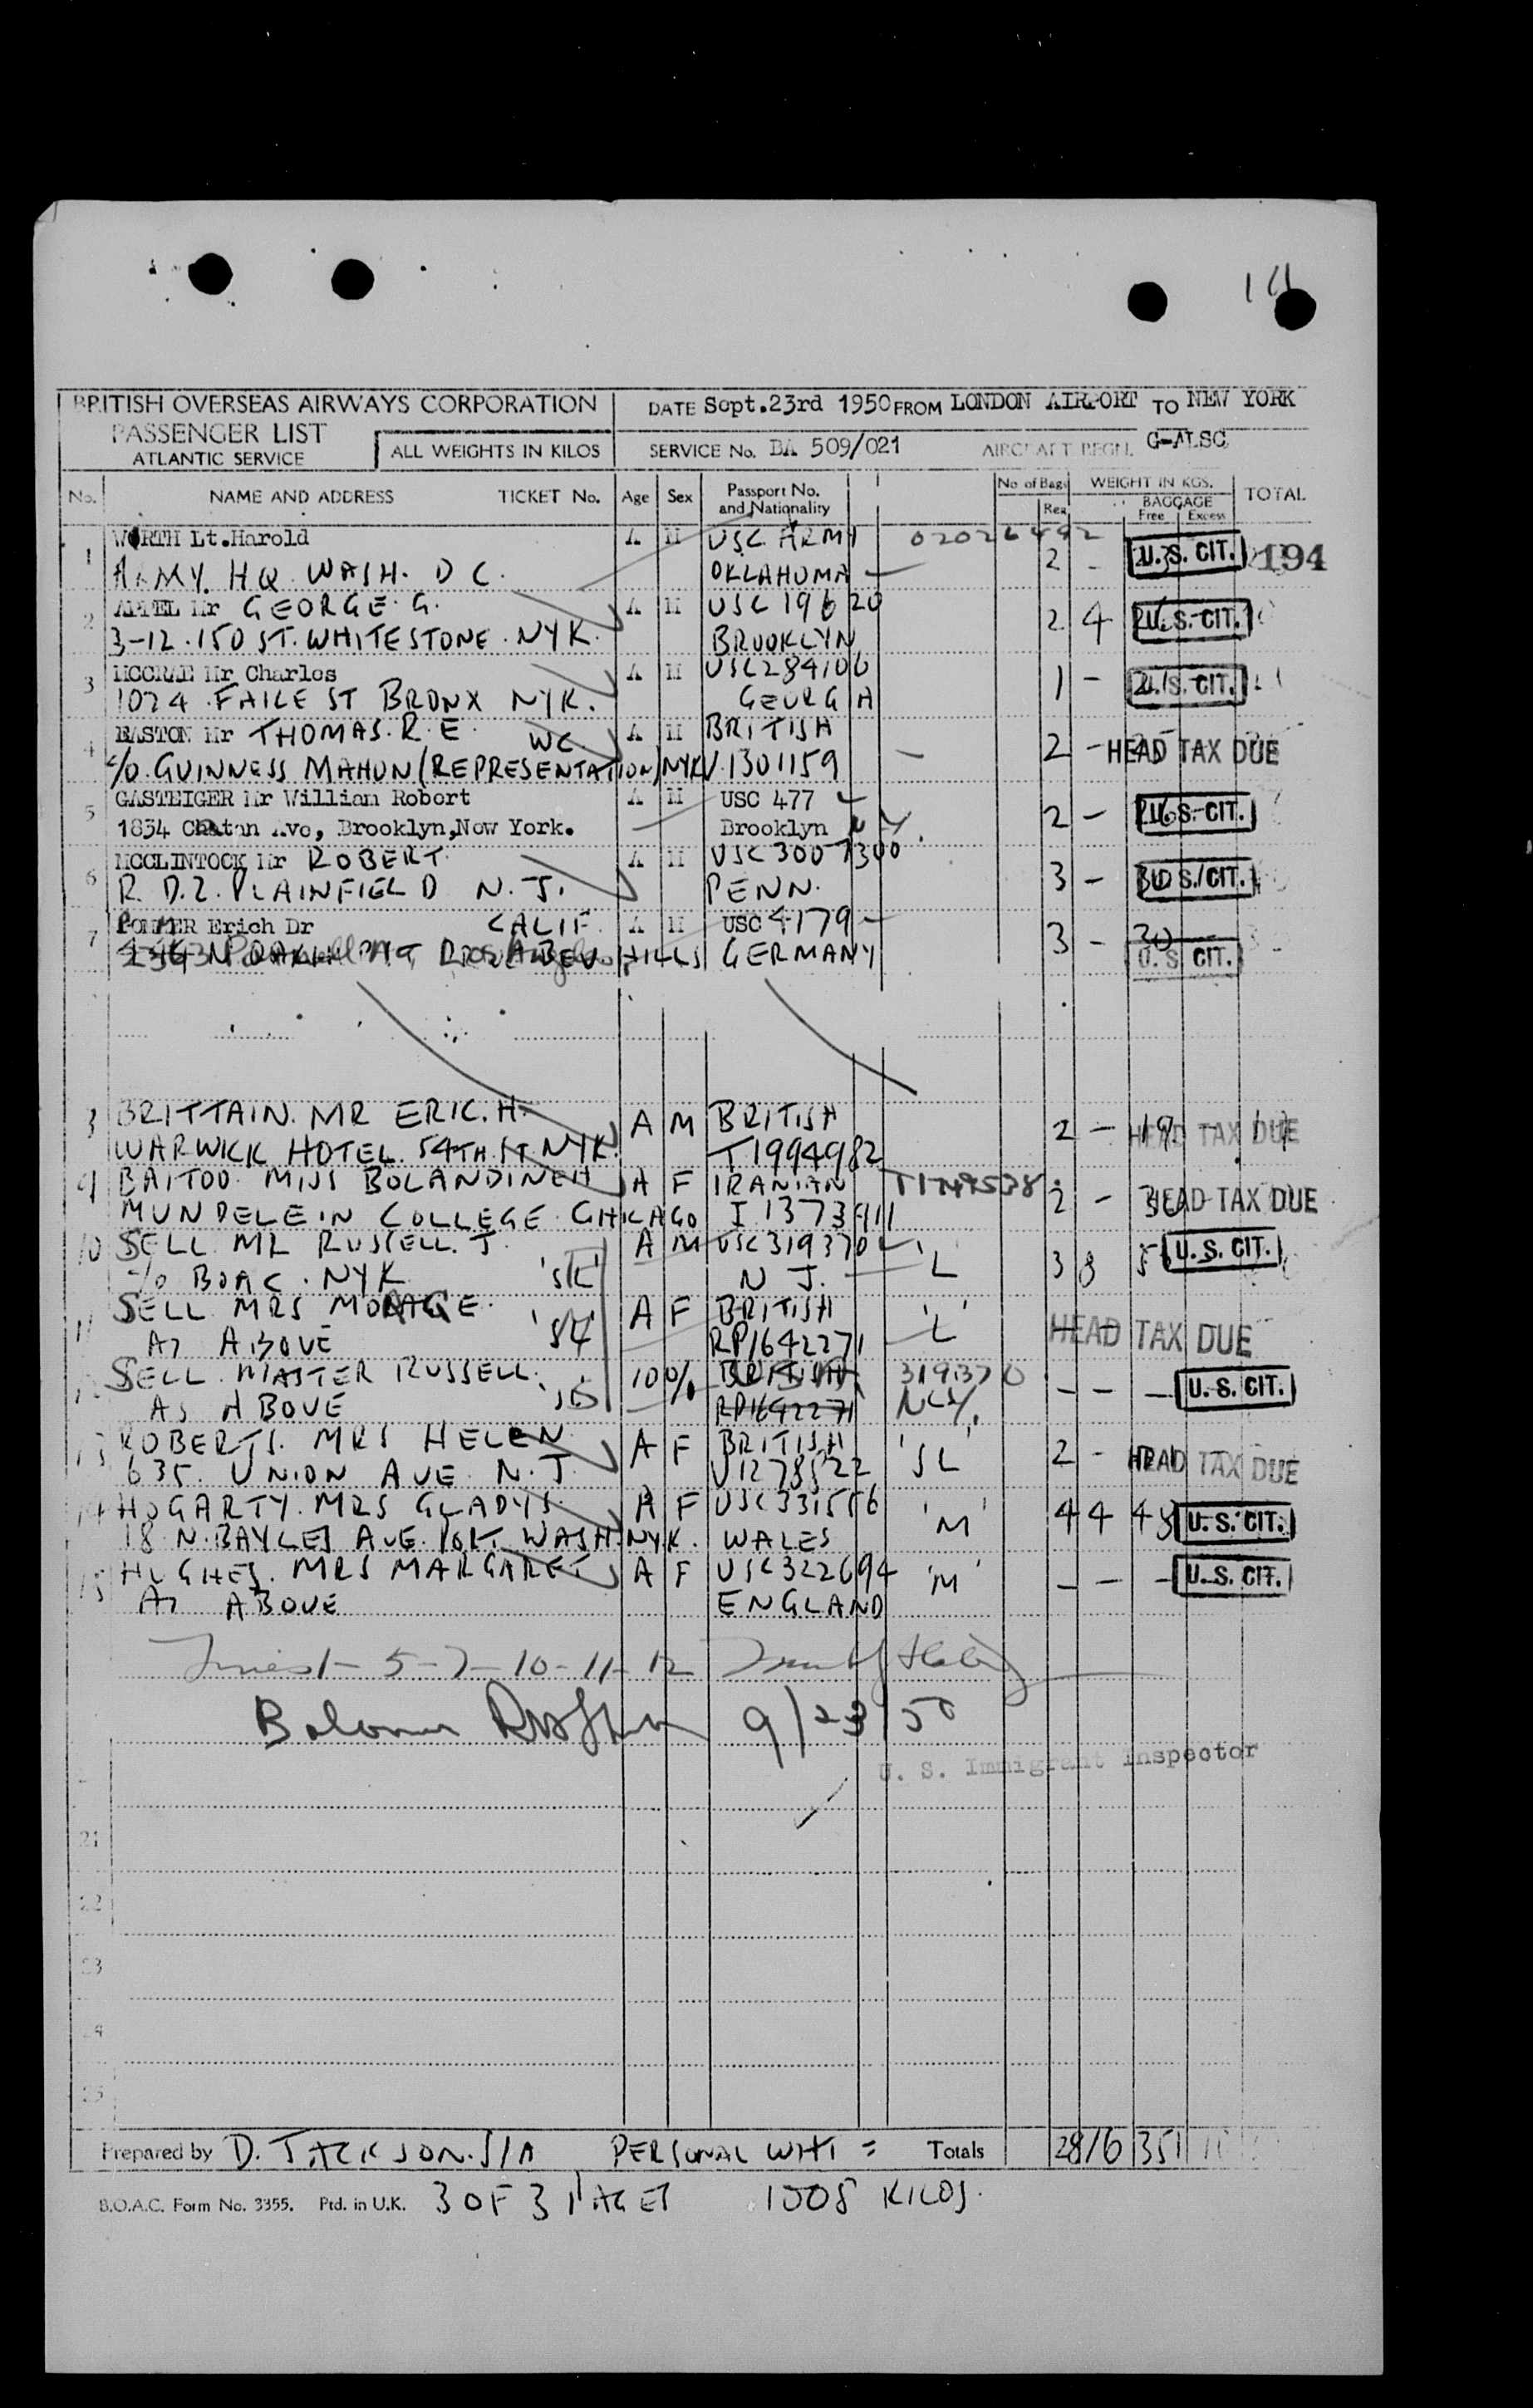 BRITISH OVERSEAS AIRWAYS CORPORATION
PASSENGER LIST
ATLANTIC SERVICE
ALL WEIGHTS IN KILOS
DATE Sept.23rd 1950 FROM LONDON AIRPORT TO NEW YORK
SERVICE No. BA 509/021 AIRCRAFT REGN. G-ALSC
No. NAME AND ADDRESS TICKET No. Age Sex Passport No. and Nationality No of Bags Reg WEIGHT IN KGS. BAGGAGE Free Excess TOTAL
1 WORTH Lt.Harold A M USC ARMY
ARMY. HQ. WASH. D C. OKLAHOMA 2 - U.S. CIT. 194
2 APPEL Mr GEORGE. G. A M USC 19620
3-12. 150 ST. WHITESTONE. NYK. BROOKLYN 2 4 U.S. CIT.
3 MCCRAE Mr Charles A M USC 284106
1024. FAILE ST BRONX NYK. GEORGIA 1 - U.S. CIT.
4 EASTON Mr THOMAS. R. E. WC A M BRITISH
C/O. GUINNESS MAHON (REPRESENTATION) NYK 1301159 2 - HEAD TAX DUE
5 GASTEIGER Mr William Robert A M USC 477
1834 Ave, Brooklyn,New York. Brooklyn N Y. 2 - U.S. CIT.
6 MCCLINTOCK Mr ROBERT A M USC 3007300
R. D. 2. PLAINFIELD N. J. PENN. 3 - 30 U.S. CIT.
7 POMMER Erich Dr CALIF. A M USC 4179
HILLS GERMANY 3 - 30 U.S. CIT.
BRITTAIN. MR ERIC. H. A M BRITISH
WARWICK HOTEL. 54TH ST NYK. T1994982 2 - 19 HEAD TAX DUE
9 BAITOO. MISS BOLANDINEH A F IRANIAN
MUNDELEIN COLLEGE. CHICAGO I 1373911 2 - HEAD TAX DUE
10 SELL MR RUSSELL. J. A M USC 319370
C/O BOAC. NYK N J. 'L' 3 8 U. S. CIT.
11 SELL MRS A F BRITISH
AS ABOVE RP1642271 'L' HEAD TAX DUE
SELL. MASTER RUSSELL. 10% BRITISH 319370
AS ABOVE RP1642271 - - - U. S. CIT.
13 ROBERTS. MRS HELEN A F BRITISH
635. UNION AVE. N. J. 'SL' 2 - HEAD TAX DUE
14 HOGARTY. MRS GLADYS. A F USC 331556
18 N. BAYLES AVE. PORT WASH. NYK. WALES 'M' 4 4 48 U. S. CIT.
15 HUGHES. MRS MARGARET A F USC 322694
AS ABOVE ENGLAND 'M' - - - U. S. CIT.
5-7-10-11-12
9/23/50
U. S. Immigrant Inspector
21
22
23
24
25
Prepared by D. JACKSON. S/A PERSONAL WHT = Totals 28/6 351
B.O.A.C. Form No. 3355. Ptd. in U.K. 3 OF 3 PAGES KILOS.